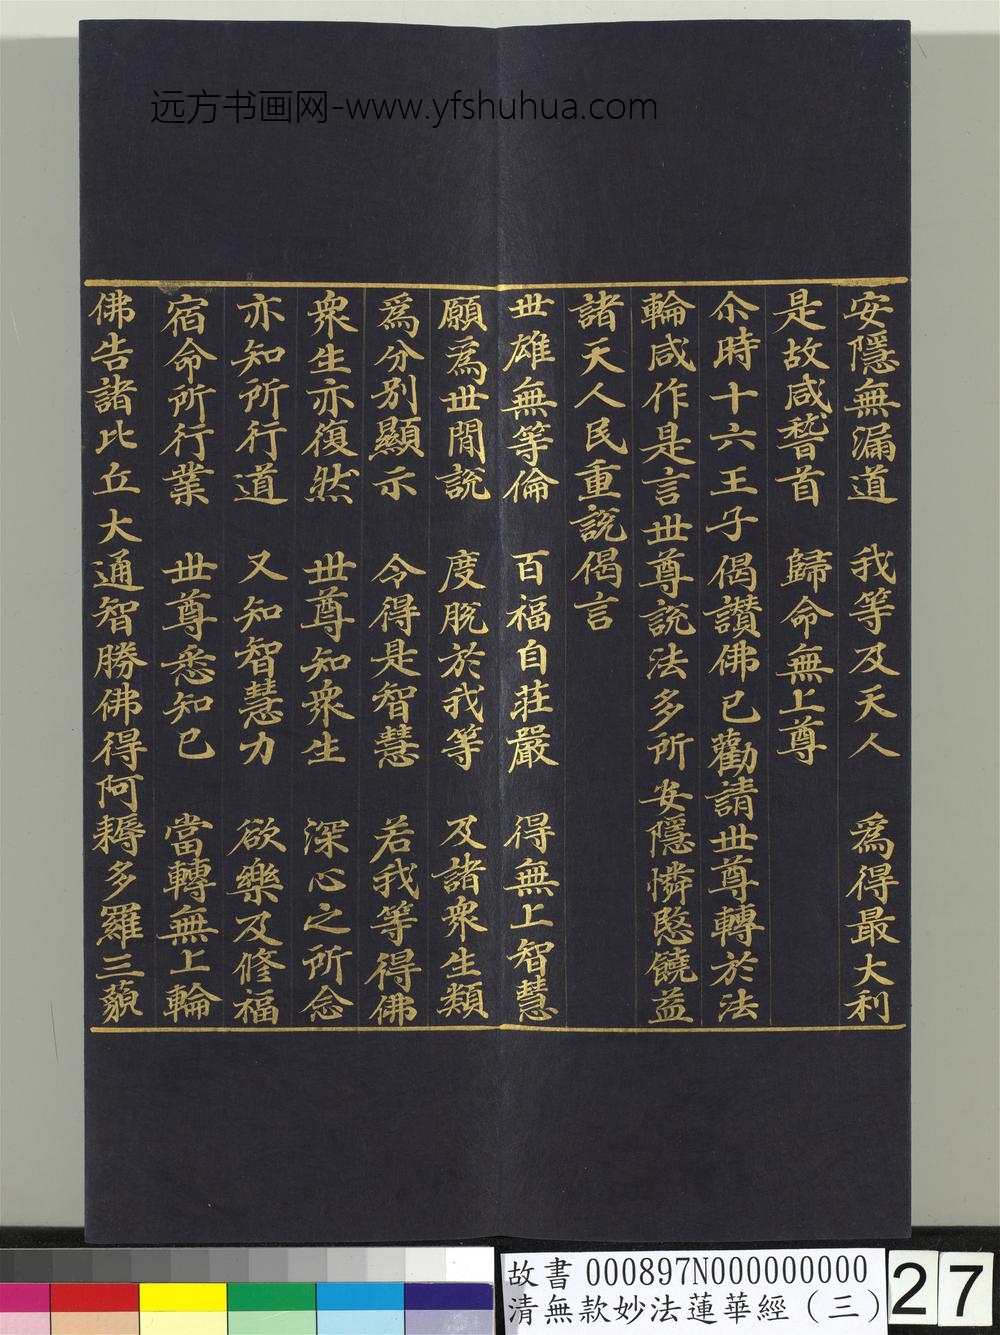 远方书画网-www.yfshuhua.com
安隱無漏道　我等及天人　為得最大利
是故咸稽首　歸命無上尊
尒時十六王子偈讚佛已勸請世尊轉於法
輪咸作是言世尊說法多所安隱憐愍饒益
諸天人民重說偈言
世雄無等倫　百福自莊嚴　得無上智慧
願為世間說　度脫於我等　及諸衆生類
為分別顯示　令得是智慧　若我等得佛
衆生亦復然　世尊知衆生　深心之所念
亦知所行道　又知智慧力　欲樂及修福
宿命所行業　世尊悉知已　當轉無上輪
佛告諸比丘大通智勝佛得阿耨多羅三藐
故書 000897N000000000
清無款妙法蓮華經（三）
27